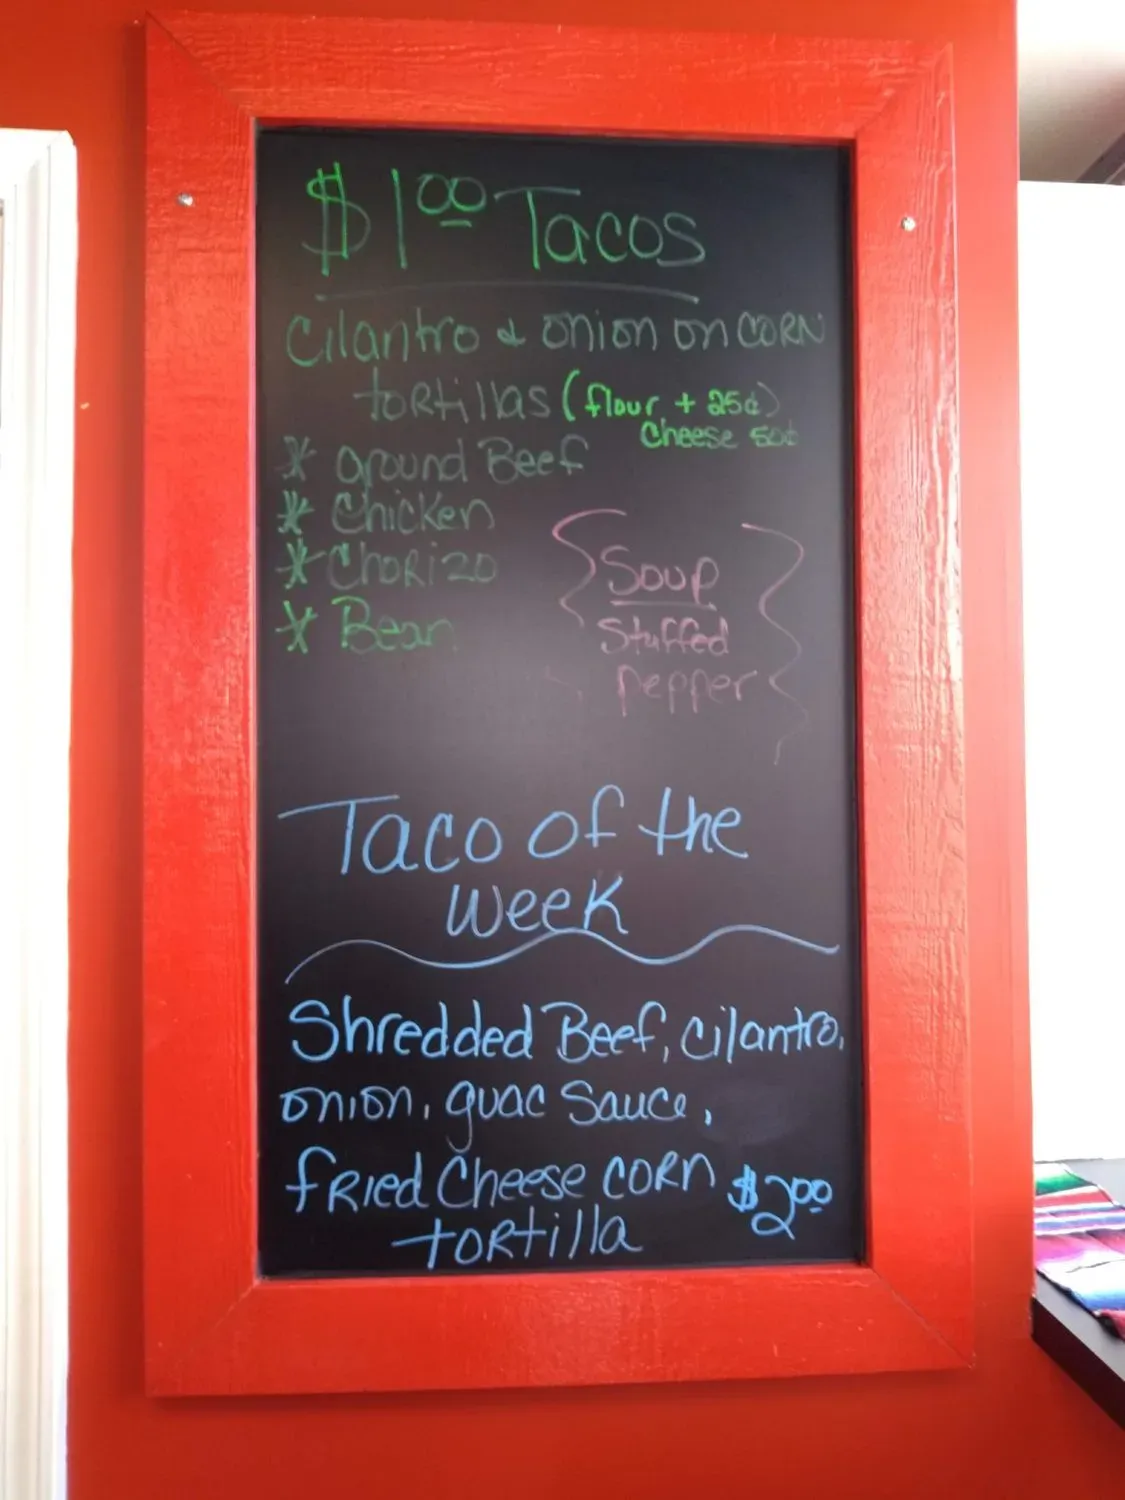 $1.00 Tacos
Cilantro & onion on CORN
tortillas (flour + 25¢)
Cheese 50¢
* ground Beef
* Chicken
* Chorizo
* Bean
Soup
Stuffed
pepper
Taco of the
Week
Shredded Beef, cilantro,
onion, guac Sauce,
fried Cheese corn $2.00
tortilla